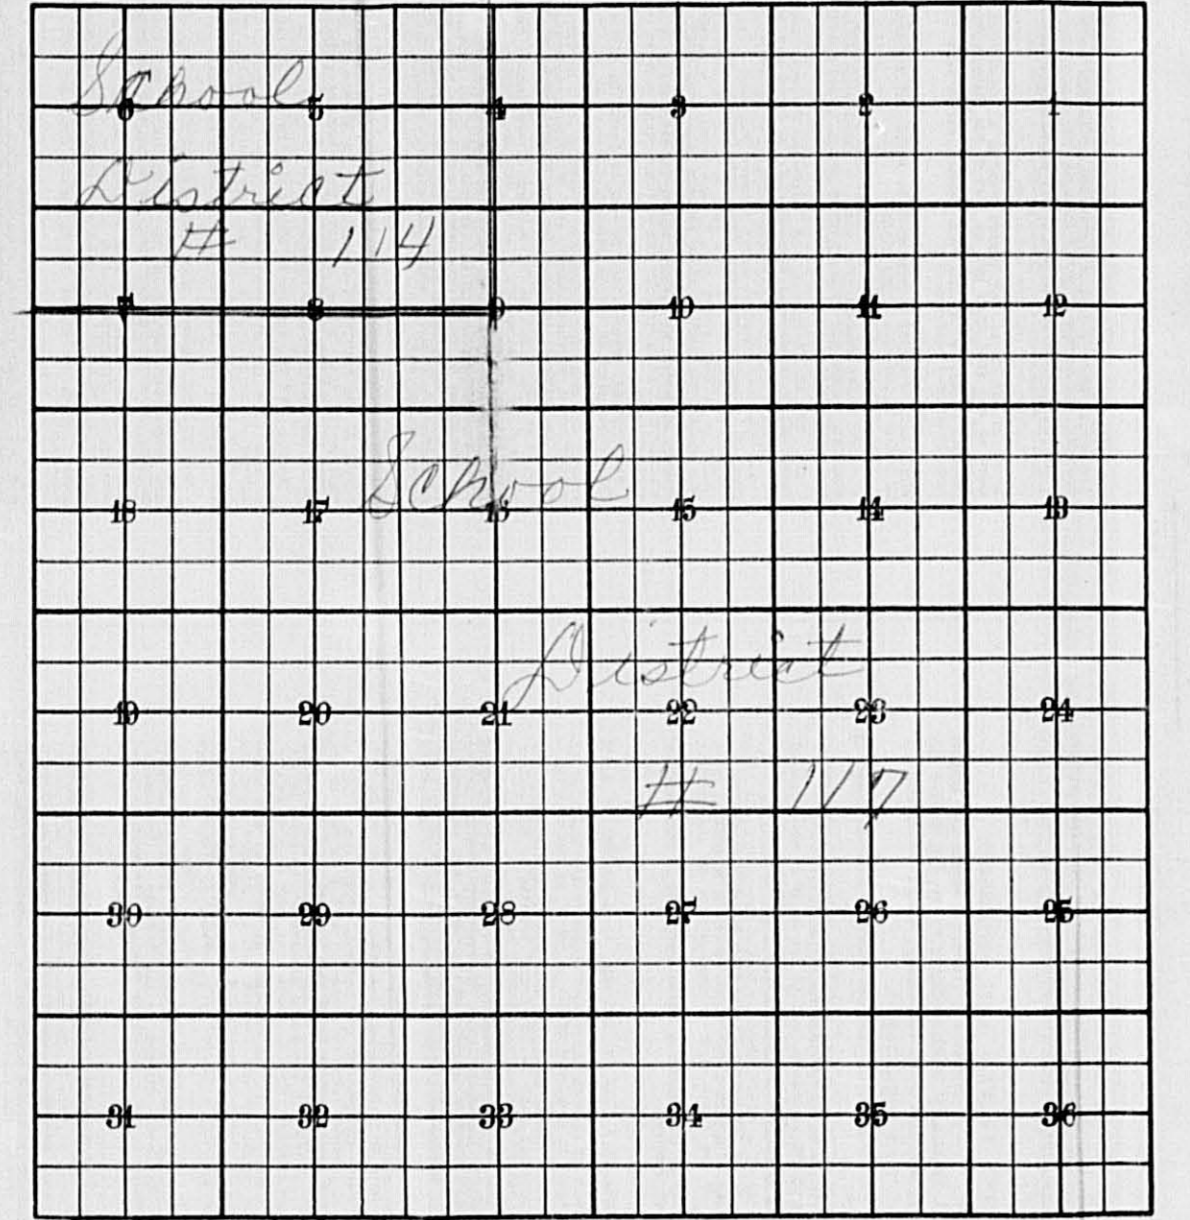 School
6 5 4 3 2 1
District
# 114
7 8 9 10 11 12
School
18 17 16 15 14 13
District
19 20 21 22 23 24
# 117
30 29 28 27 26 25
31 32 33 34 35 36